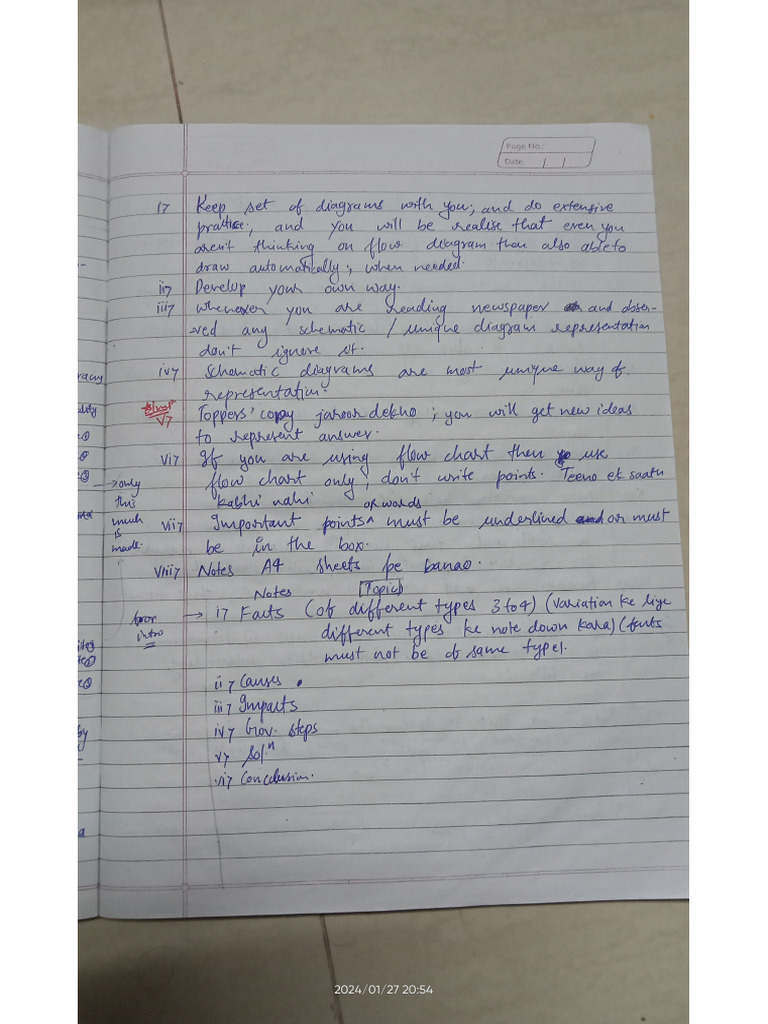 Page No.:
Date
i> Keep set of diagrams with you; and do extensive
practice; and you will be realise that even you
aren't thinking on flow diagram then also able to
draw automatically, when needed.
ii> Develop your own way.
iii> Whenever you are reading newspaper and obser-
-ved any schematic / unique diagram representation
don't ignore it.
iv> Schematic diagrams are most unique way of
representation.
v> Toppers' copy jaroor dekho ; you will get new ideas
to represent answer.
vi> If you are using flow chart then use
flow chart only; don't write points. Teeno ek saath
kabhi nahi
→ only
this
much
is
made.
or words
vii> Important points^ must be underlined or must
be in the box.
viii> Notes A4 sheets pe banao.
Notes [Topic]
for
intro
→ i> Facts (of different types 3 to 4) (variation ke liye
different types ke note down kara) (facts
must not be of same type).
ii> Causes .
iii> Impacts
iv> Gov. steps
v> Solⁿ
vi> Conclusion.
2024/01/27 20:54